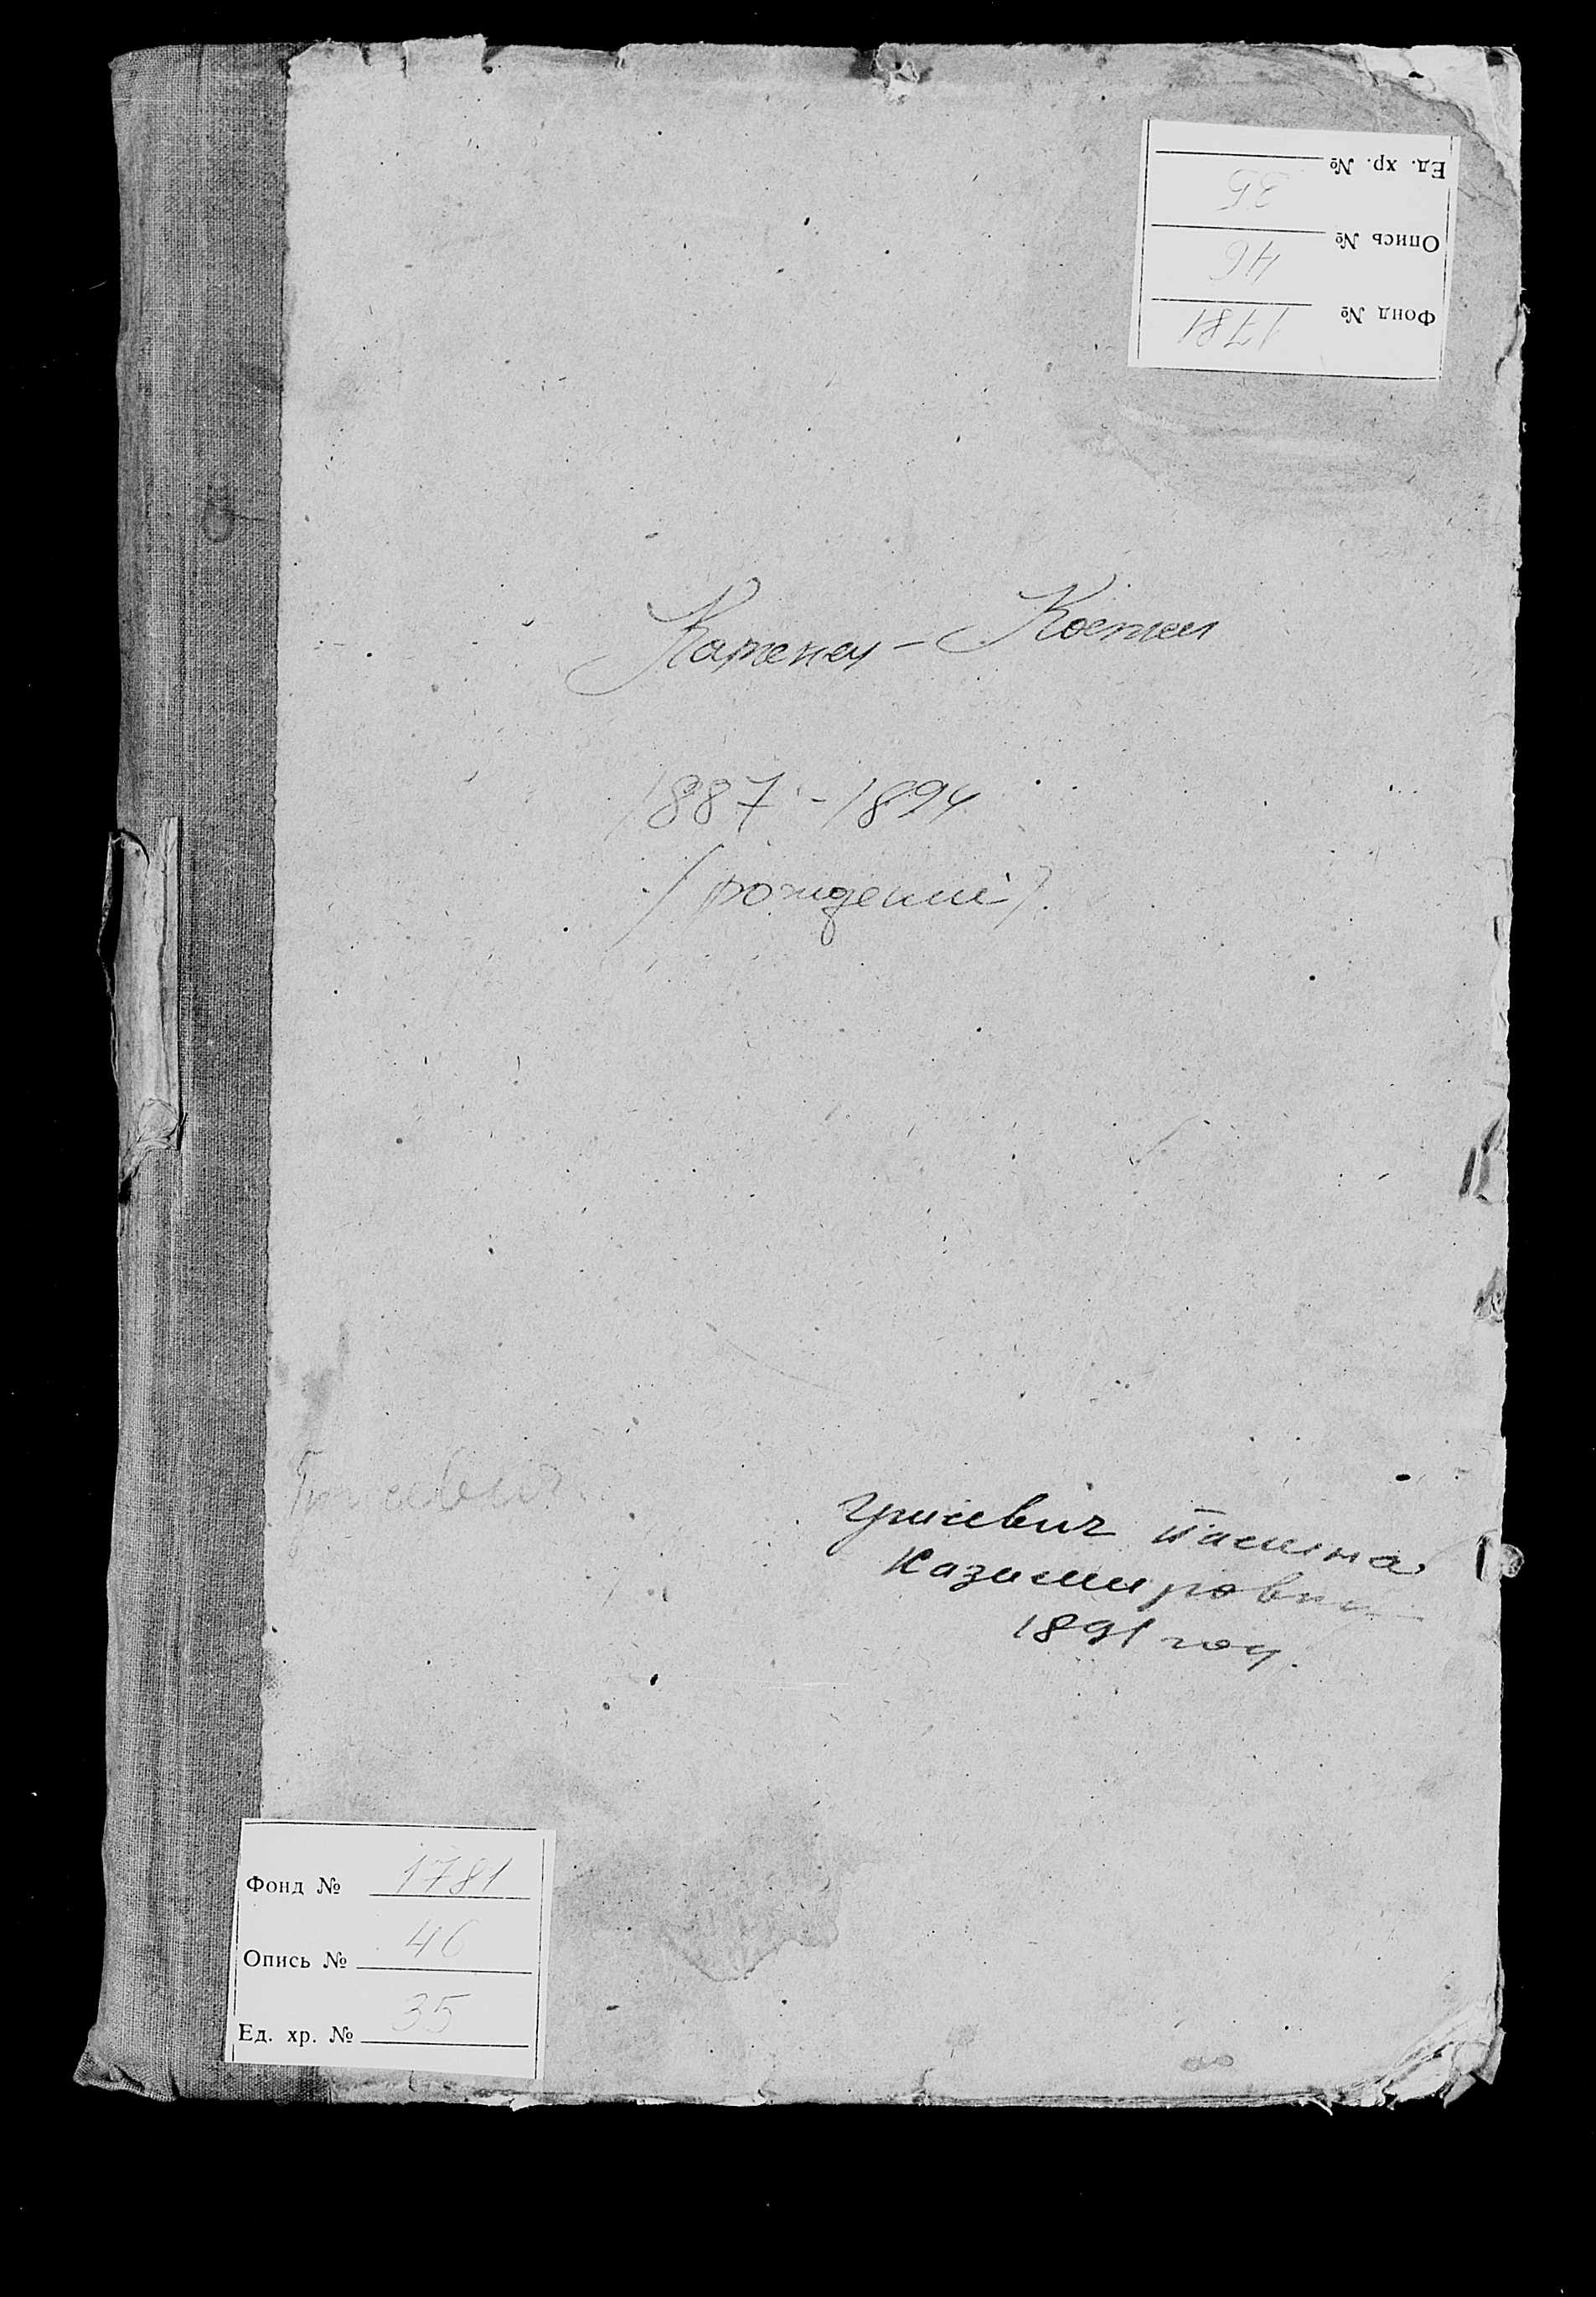 Ед. хр. № 35
Опись № 46
Фонд № 1781
Каменец - Костел
1887 - 1894
/рождений/
Грисевич
Грисевич
Казимиров
1891 год.
Фонд № 1781
Опись № 46
Ед. хр. № 35